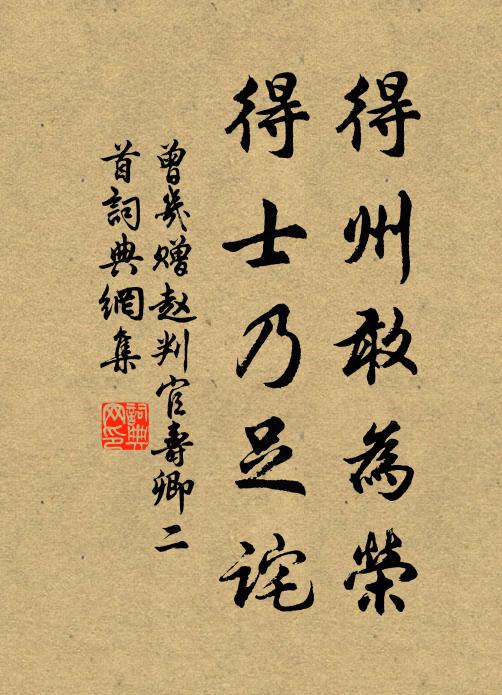 得州敢為榮
得士乃足詫
曾幾赠赵判官壽卿二
首詞典網集
詞典
网印